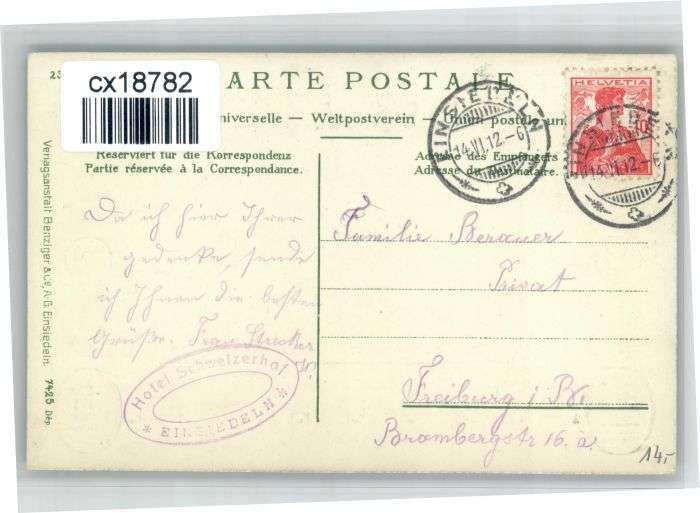 23
cx18782
ARTE POSTALE
niverselle — Weltpostverein — Union postale un.
Reserviert für die Korrespondenz
Partie réservée à la Correspondance.
Adresse des Empfängers
Adresse du Destinataire.
HELVETIA
EINSIEDELN
14.VI.12.-6
EINSIEDELN
14.VI.12.-6
Da ich hier Ihrer
gedenke, sende
ich Ihnen die besten
Grüße. Frau
Familie Berauer
Privat
Freiburg i. Br.
Brombergstr 16. a.
Hotel Schweizerhof
* EINSIEDELN *
Verlagsanstalt Benziger & Co. A.G. Einsiedeln. 7425 Dép.
14.-